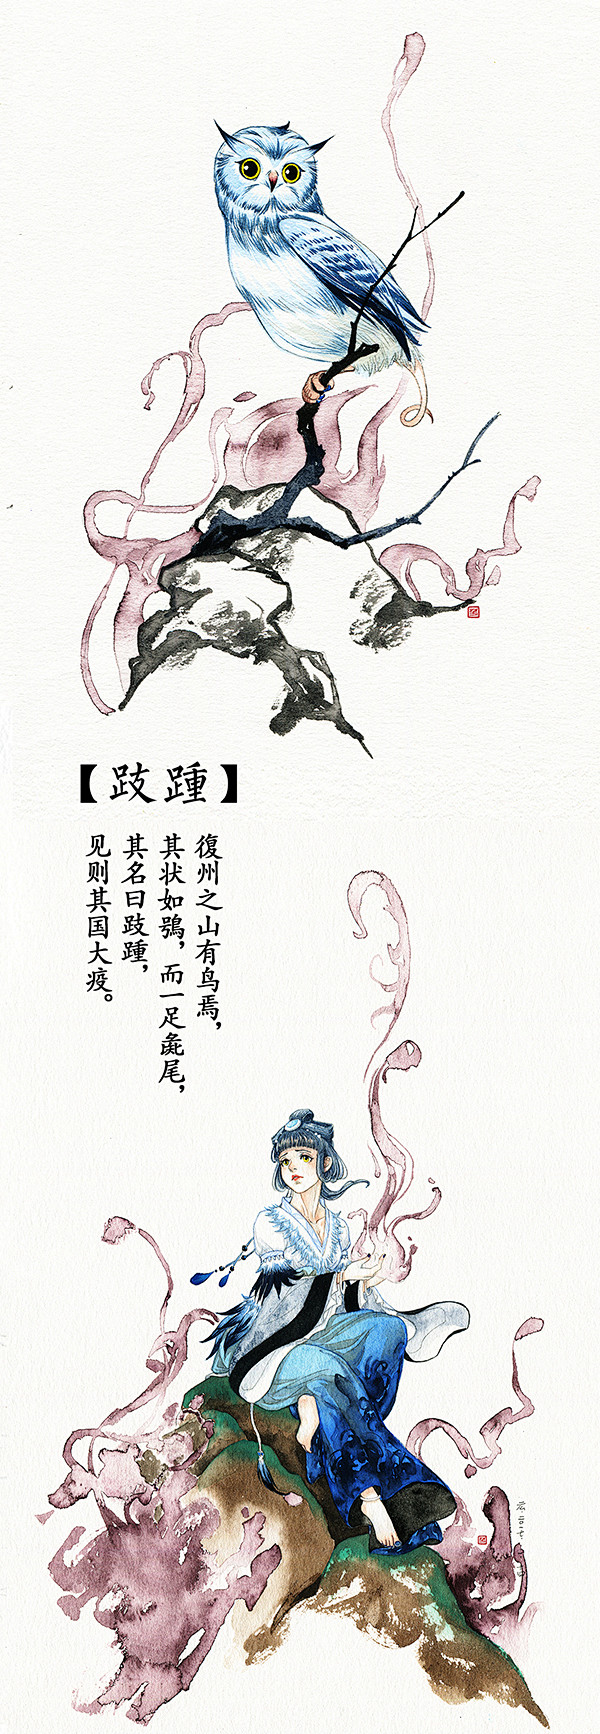 【跂踵】
復州之山有鸟焉，
其状如鴞，而一足彘尾，
其名曰跂踵，
见则其国大疫。